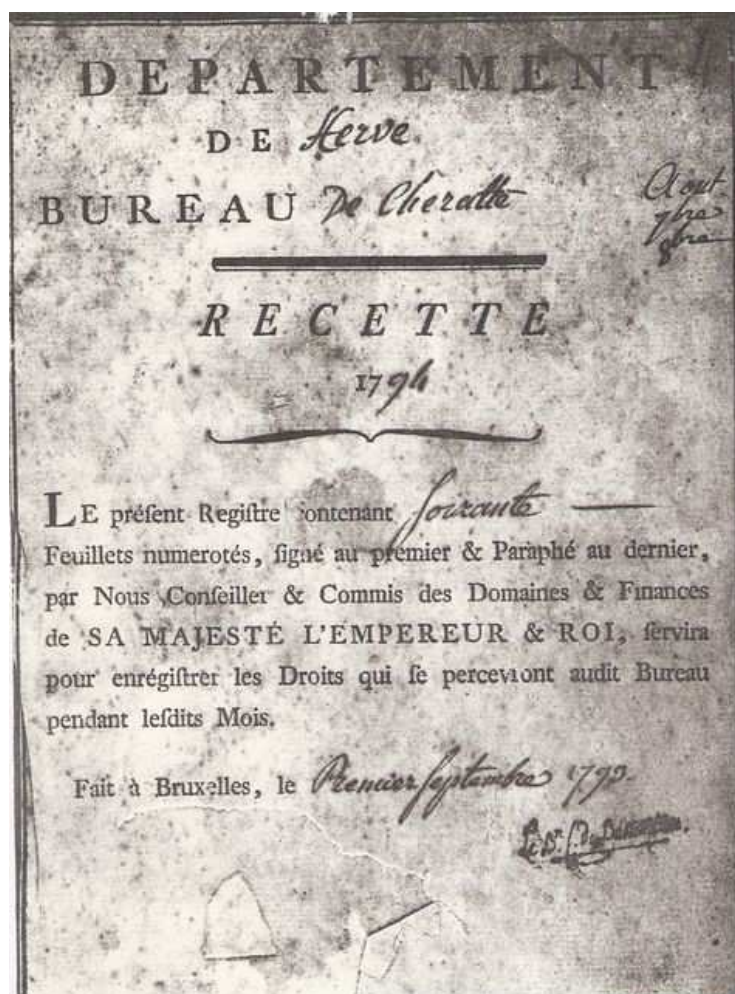 DEPARTEMENT
DE Herve
BUREAU De Cheratte
Aout
7bre
8bre
RECETTE
1794
LE préſent Regiſtre contenant ſoixante
Feuillets numerotés, ſigné au premier & Paraphé au dernier,
par Nous Conſeiller & Commis des Domaines & Finances
de SA MAJESTÉ L'EMPEREUR & ROI, ſervira
pour enrégiſtrer les Droits qui ſe percevront audit Bureau
pendant leſdits Mois.
Fait à Bruxelles, le Premier ſeptembre 1793.